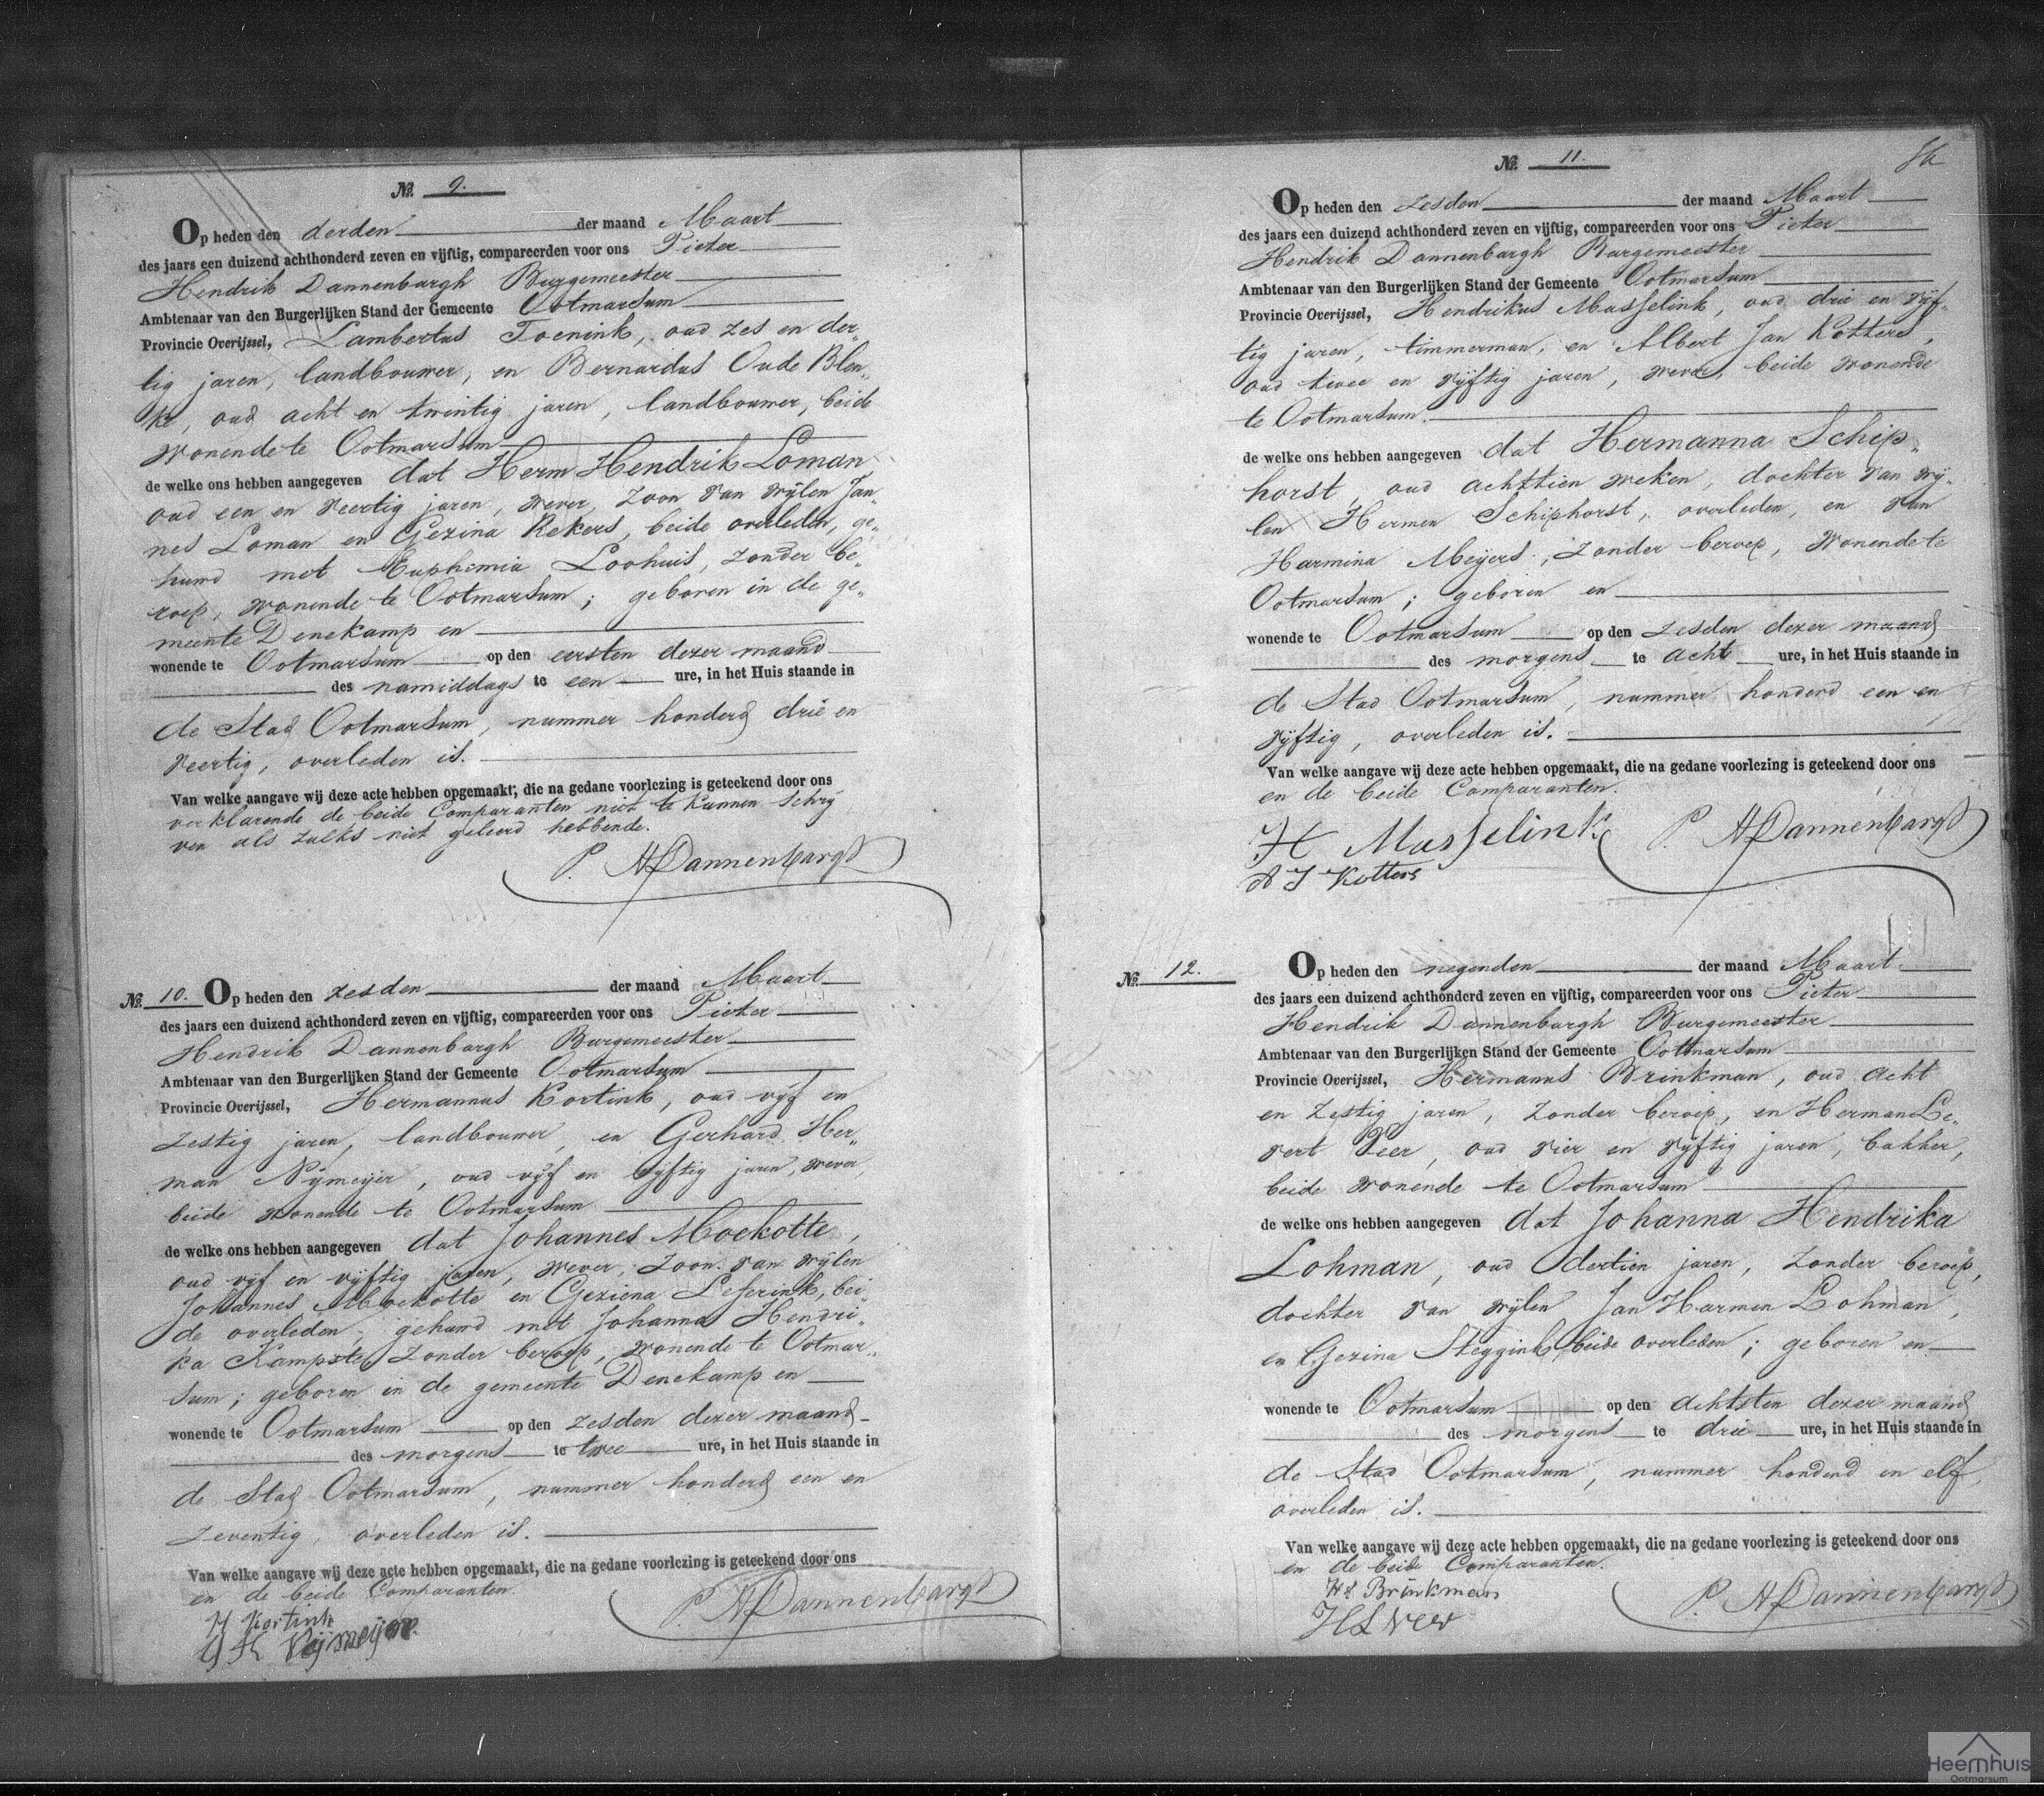 №. 9.
Op heden den derden der maand Maart
des jaars een duizend achthonderd zeven en vijftig, compareerden voor ons Pieter
Hendrik Dannenbargh Burgemeester
Ambtenaar van den Burgerlijken Stand der Gemeente Ootmarsum
Provincie Overijssel, Lambertus Toenink, oud zes en der„
tig jaren, landbouwer, en Bernardus Oude Blen„
ke, oud acht en twintig jaren, landbouwer, beide
wonende te Ootmarsum
de welke ons hebben aangegeven dat Herm Hendrik Loman,
oud een en veertig jaren, wever, zoon van wijlen Jan„
nes Loman en Gezina Rekers, beide overleden, ge„
huwd met Euphemia Loohuis, zonder be„
roep, wonende te Ootmarsum; geboren in de ge„
meente Denekamp en
wonende te Ootmarsum op den eersten dezer maand
des namiddags te een ure, in het Huis staande in
de Stad Ootmarsum, nummer honderd drie en
veertig, overleden is.
Van welke aangave wij deze acte hebben opgemaakt, die na gedane voorlezing is geteekend door ons
verklarende de beide Comparanten niet te kunnen schrij
ven als zulks niet geleerd hebbende.
P. H Dannenbargh
№. 10. Op heden den zesden der maand Maart
des jaars een duizend achthonderd zeven en vijftig, compareerden voor ons Pieter
Hendrik Dannenbargh Burgemeester
Ambtenaar van den Burgerlijken Stand der Gemeente Ootmarsum
Provincie Overijssel, Hermannus Kortink, oud vijf en
zestig jaren, landbouwer, en Gerhard Her„
man Nijmeijer, oud vijf en vijftig jaren, wever,
beide wonende te Ootmarsum
de welke ons hebben aangegeven dat Johannes Moekotte,
oud vijf en vijftig jaren, wever, zoon van wijlen
Johannes Moekotte en Geziena Leferink, bei„
de overleden, gehuwd met Johanna Hendri„
ka Kampste, zonder beroep, wonende te Ootmar„
sum; geboren in de gemeente Denekamp en
wonende te Ootmarsum op den zesden dezer maand
des morgens te twee ure, in het Huis staande in
de Stad Ootmarsum, nummer honderd een en
zeventig, overleden is.
Van welke aangave wij deze acte hebben opgemaakt, die na gedane voorlezing is geteekend door ons
en de beide Comparanten.
H Kortink
G H Nijmeijer
P. H Dannenbargh
№. 11.
Op heden den zesden der maand Maart
des jaars een duizend achthonderd zeven en vijftig, compareerden voor ons Pieter
Hendrik Dannenbargh Burgemeester
Ambtenaar van den Burgerlijken Stand der Gemeente Ootmarsum
Provincie Overijssel, Hendrikus Masselink, oud drie en vijf„
tig jaren, timmerman, en Albert Jan Kotters,
oud twee en vijftig jaren, wever, beide wonende
te Ootmarsum.
de welke ons hebben aangegeven dat Hermanna Schip„
horst, oud achttien weken, dochter van wij„
len Hermen Schiphorst, overleden, en van
Harmina Meijers, zonder beroep, wonende te
Ootmarsum; geboren en
wonende te Ootmarsum op den zesden dezer maand
des morgens te acht ure, in het Huis staande in
de Stad Ootmarsum, nummer honderd een en
vijftig, overleden is.
Van welke aangave wij deze acte hebben opgemaakt, die na gedane voorlezing is geteekend door ons
en de beide Comparanten.
H Masselink P. H Dannenbargh
A J Kotters
№. 12. Op heden den negenden der maand Maart
des jaars een duizend achthonderd zeven en vijftig, compareerden voor ons Pieter
Hendrik Dannenbargh Burgemeester
Ambtenaar van den Burgerlijken Stand der Gemeente Ootmarsum
Provincie Overijssel, Hermanus Brinkman, oud acht
en zestig jaren, zonder beroep, en Herman Le„
vert Veer, oud vier en vijftig jaren, bakker,
beide wonende te Ootmarsum
de welke ons hebben aangegeven dat Johanna Hendrika
Lohman, oud dertien jaren, zonder beroep,
dochter van wijlen Jan Harmen Lohman,
en Gezina Steggink, beide overleden; geboren en
wonende te Ootmarsum op den achtsten dezer maand
des morgens te drie ure, in het Huis staande in
de Stad Ootmarsum, nummer honderd en elf,
overleden is.
Van welke aangave wij deze acte hebben opgemaakt, die na gedane voorlezing is geteekend door ons
en de beide Comparanten.
Hs Brinkman
H L Veer
P. H Dannenbargh
Heemhuis
Ootmarsum